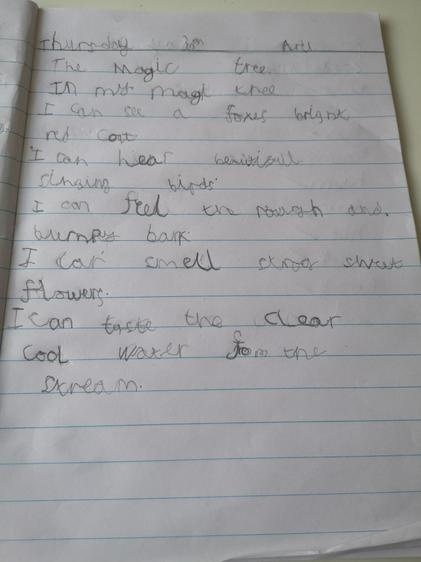 Thursday
The Magic tree.
In my magt tree
I can see a foxes bright
red coat
I can hear beautifull
singing birds.
I can feel the rough and.
bumpy bark
I can smell strog sweet
flowers.
I can taste the clear
cool water from the
stream.